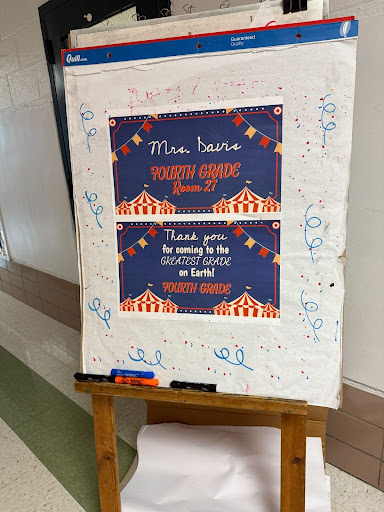 Quill.com
Guaranteed
Quality
Mrs. Davis
FOURTH GRADE
Room 27
Thank you
for coming to the
GREATEST GRADE
on Earth!
FOURTH GRADE